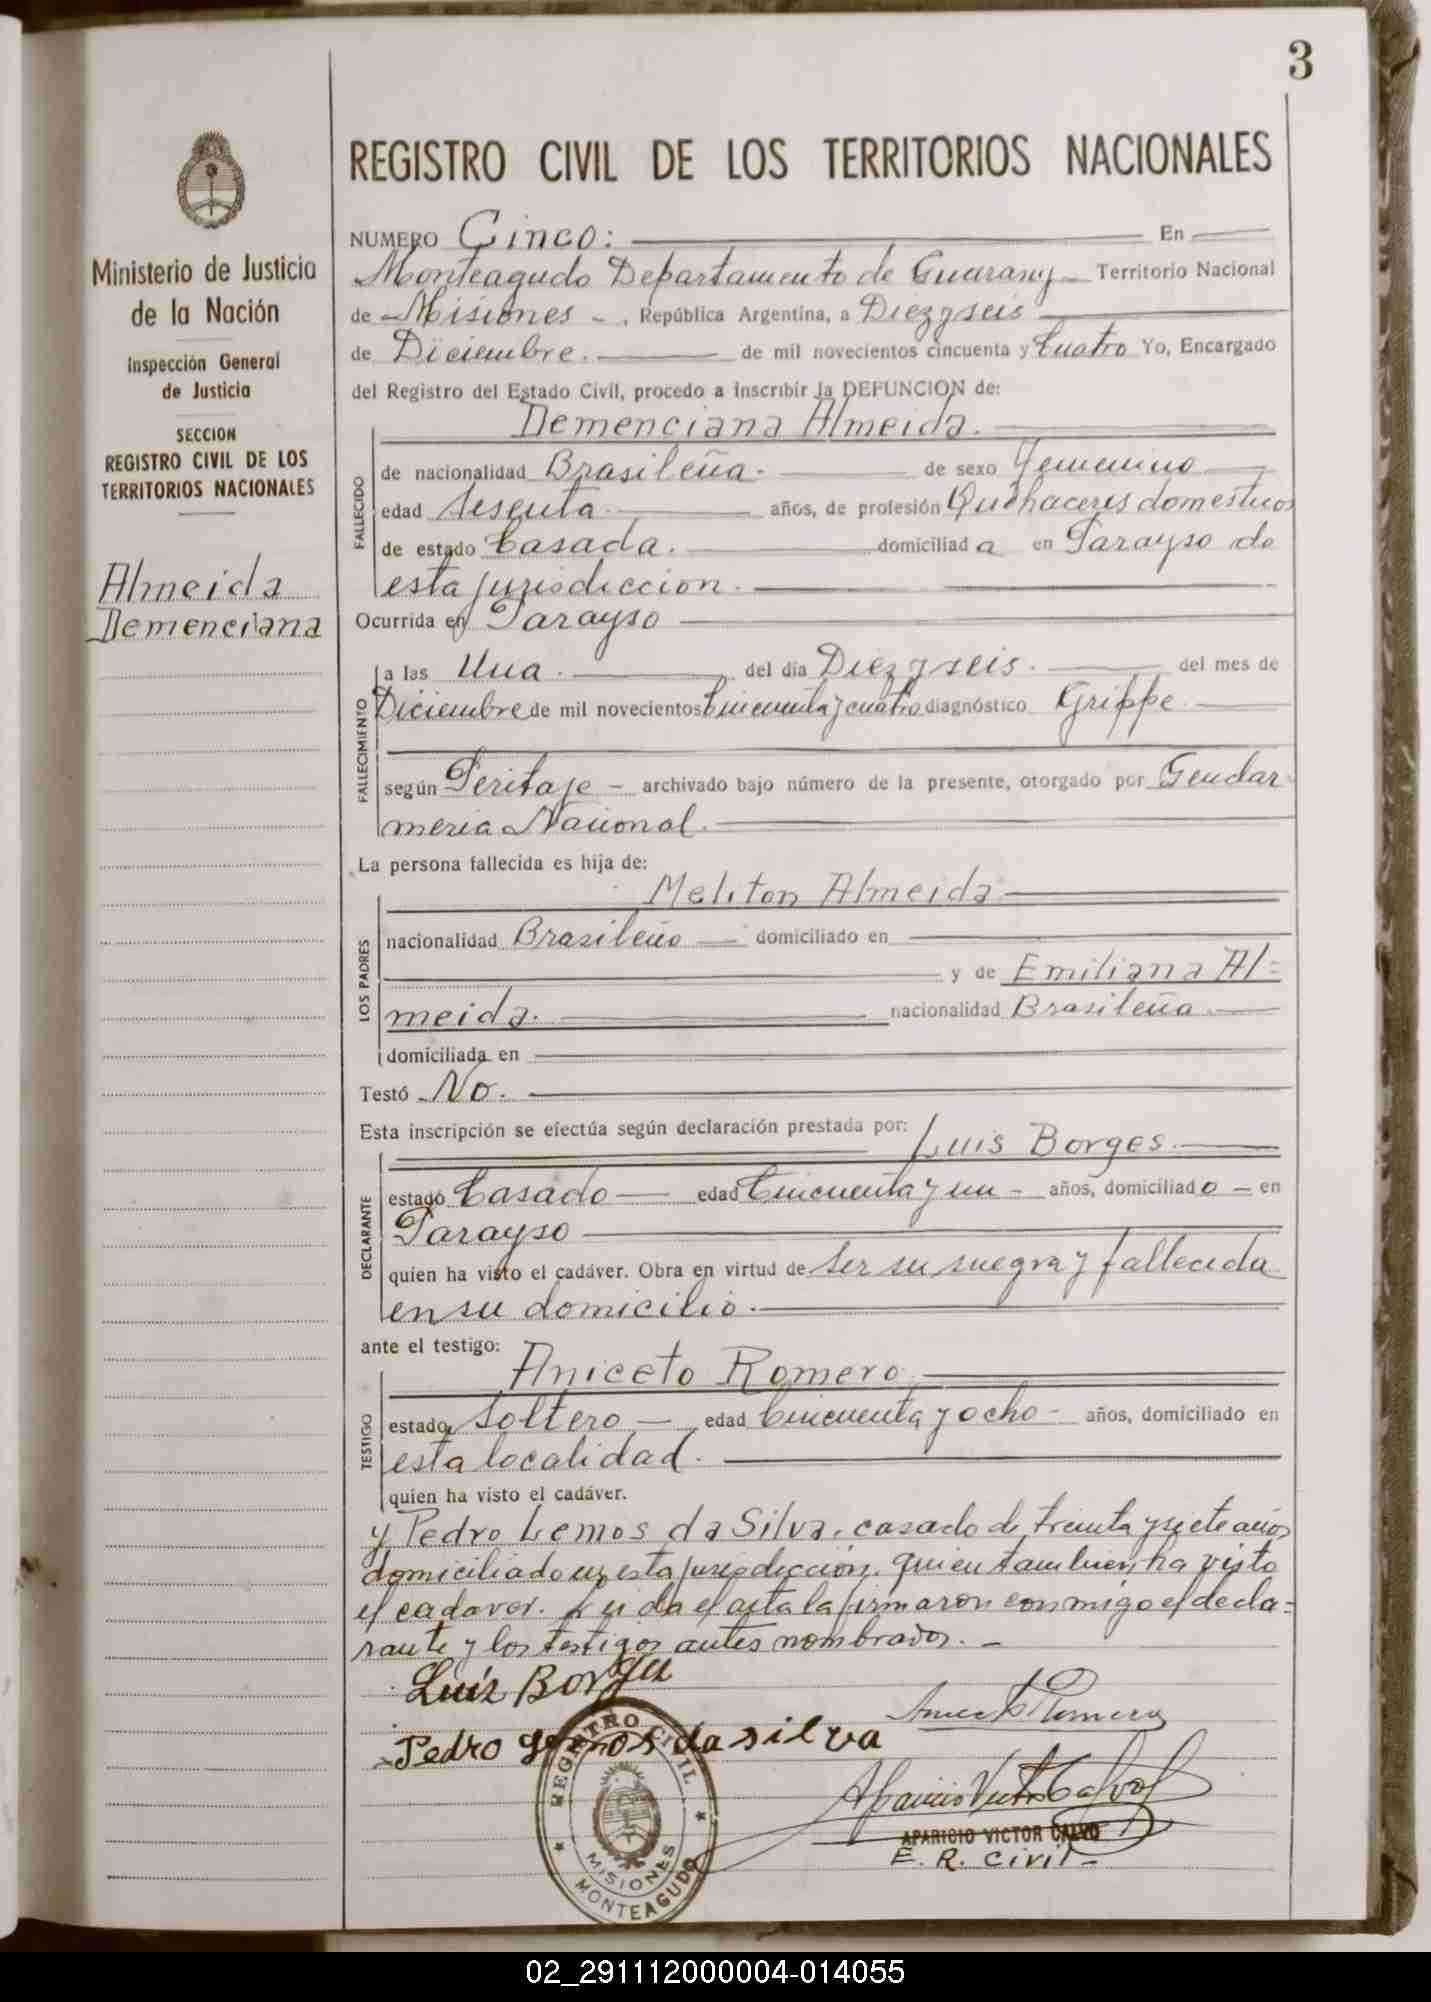 3
Ministerio de Justicia
de la Nación
Inspección General
de Justicia
SECCION
REGISTRO CIVIL DE LOS
TERRITORIOS NACIONALES
Almeida
Demenciana
REGISTRO CIVIL DE LOS TERRITORIOS NACIONALES
NUMERO Cinco: En
Monteagudo Departamento de Guarany Territorio Nacional
de Misiones - , República Argentina, a Diezyseis
de Diciembre. de mil novecientos cincuenta y Cuatro Yo, Encargado
del Registro del Estado Civil, procedo a inscribir la DEFUNCION de:
Demenciana Almeida.
FALLECIDO
de nacionalidad Brasileña. de sexo Femenino
edad Sesenta. años, de profesión Quehaceres domesticos
de estado Casada. domiciliada en Parayso de
esta jurisdiccion.
Ocurrida en Parayso
FALLECIMIENTO
a las Una. del día Diezyseis. del mes de
Diciembre de mil novecientos Cincuenta y cuatro diagnóstico Grippe
según Peritaje - archivado bajo número de la presente, otorgado por Gendar-
meria Nacional.
La persona fallecida es hija de:
Meliton Almeida
LOS PADRES
nacionalidad Brasileño domiciliado en
y de Emiliana Al=
meida. nacionalidad Brasileña
domiciliada en
Testó No.
Esta inscripción se efectúa según declaración prestada por: Luis Borges.
DECLARANTE
estado Casado edad Cincuenta y un - años, domiciliado - en
Parayso
quien ha visto el cadáver. Obra en virtud de ser su suegra y fallecida
en su domicilio.
ante el testigo:
Aniceto Romero
TESTIGO
estado Soltero - edad Cincuenta y ocho - años, domiciliado en
esta localidad.
quien ha visto el cadáver.
y Pedro Lemos da Silva, casado de treinta y siete años
domiciliado en esta jurisdiccion. quien tambien ha visto
el cadaver. Leida el acta la firmaron conmigo el decla=
rante y los testigos antes nombrados. -
Luiz Borges
Aniceto Romero
Pedro Lemos da silva
Aparicio Victor Calvo
APARICIO VICTOR CALVO
E. R. Civil -
REGISTRO CIVIL
MISIONES
MONTEAGUDO
02_291112000004-014055